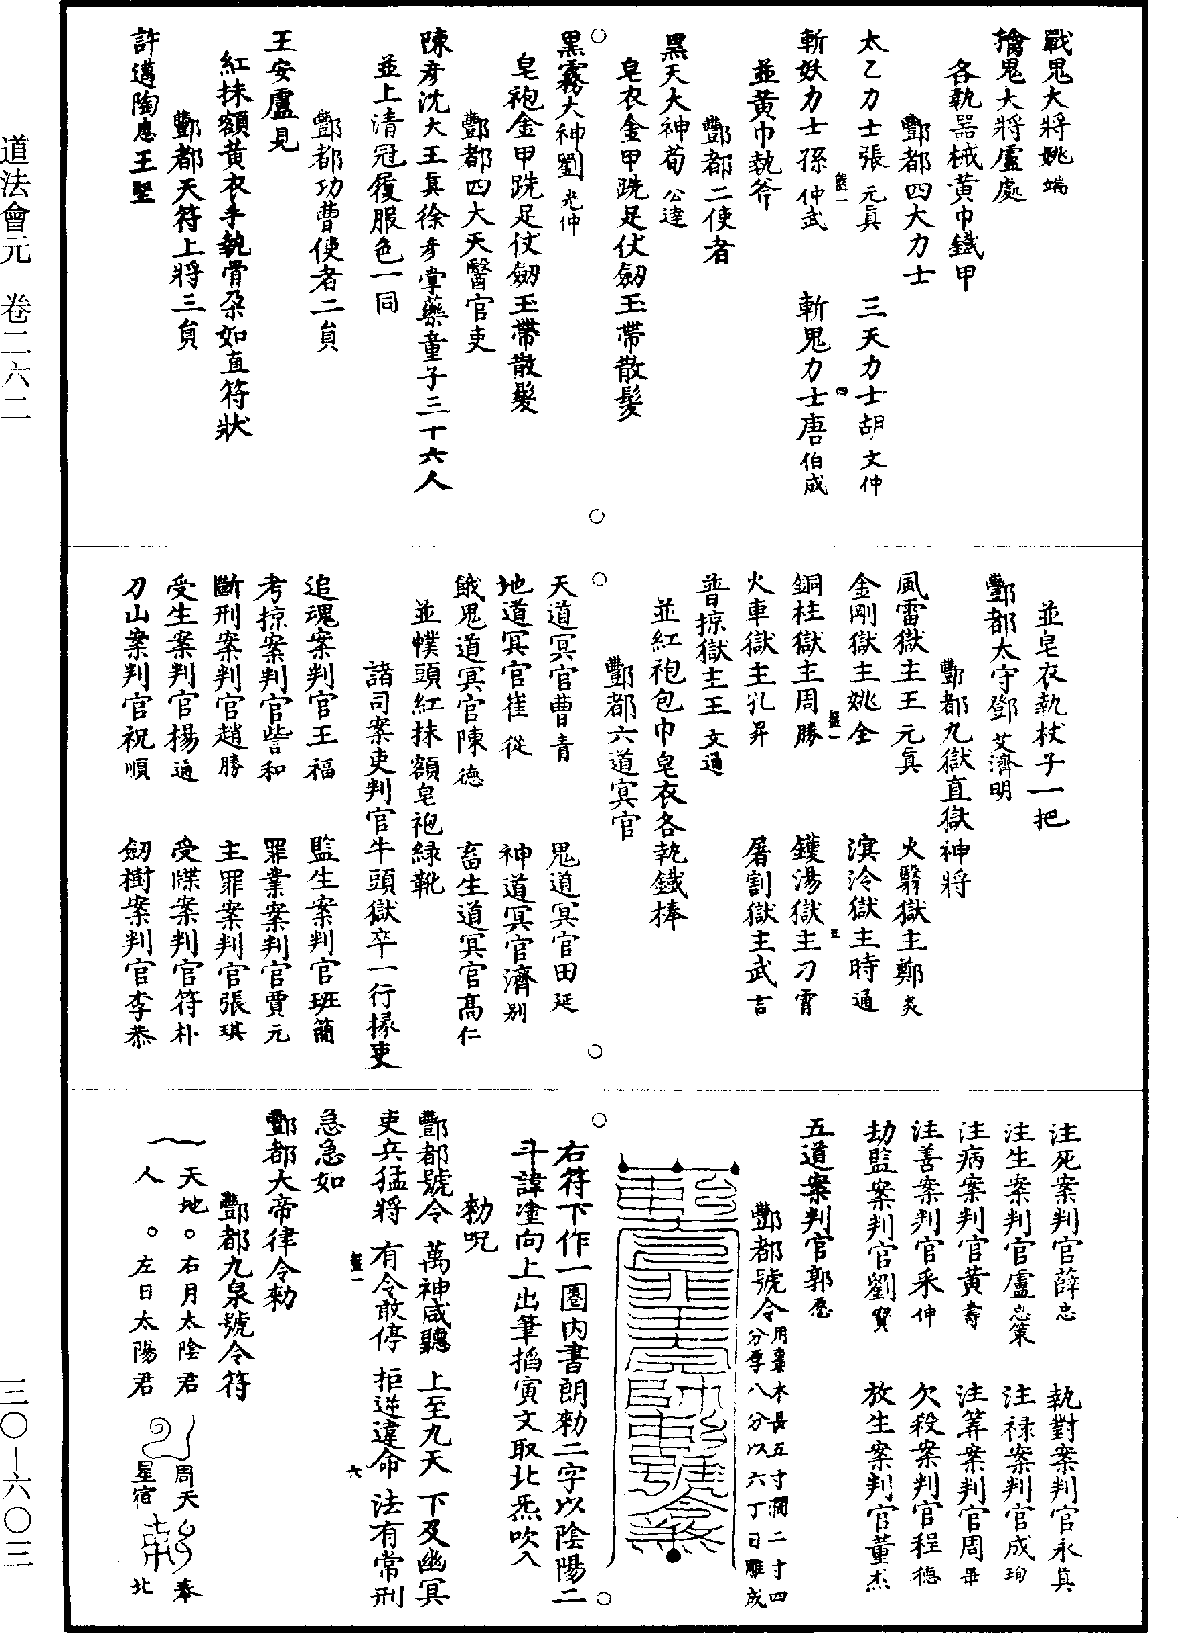 道法會元　卷二六二
三〇—六〇三
戰鬼大將姚端
擒鬼大將盧處
各執器械黃巾鐵甲
酆都四大力士
太乙力士張元真　三天力士胡文仲
斬妖力士孫仲武　斬鬼力士唐伯成
並黃巾執斧
酆都二使者
黑天大神荀公達
皂衣金甲跣足仗劒玉帶散髮
黑霧大神劉光仲
皂袍金甲跣足仗劒玉帶散髮
酆都四大天醫官吏
陳彥沈大王真徐彥掌藥童子三十六人
並上清冠履服色一同
酆都功曹使者二員
王安盧見
紅抹額黃衣手執骨朵如直符狀
酆都天符上將三員
許邁陶應王堅
並皂衣執杖子一把
酆都太守鄧艾濟明
酆都九獄直獄神將
風雷獄主王元真　火翳獄主鄭炎
金剛獄主姚全　溟泠獄主時通
銅柱獄主周勝　鑊湯獄主刁霄
火車獄主孔昇　屠割獄主武言
普掠獄主王文通
並紅袍包巾皂衣各執鐵棒
酆都六道冥官
天道冥官曹青　鬼道冥官田延
地道冥官崔從　神道冥官濟別
餓鬼道冥官陳德　畜生道冥官高仁
並幞頭紅抹額皂袍綠靴
諸司案吏判官牛頭獄卒一行掾吏
追魂案判官王福　監生案判官班簡
考掠案判官訾和　罪業案判官賈元
斷刑案判官趙勝　主罪案判官張琪
受生案判官楊通　受牒案判官符朴
刀山案判官祝順　劒樹案判官李恭
注死案判官薛忠　執對案判官永真
注生案判官盧忠策　注祿案判官成珣
注病案判官黃壽　注筭案判官周畢
注善案判官采仲　欠殺案判官程德
劫監案判官劉寶　放生案判官董杰
五道案判官郭歷
酆都號令用棗木長五寸闊二寸四分厚八分以六丁日雕成
右符下作一圈內書朗勑二字以陰陽二
斗諱塗向上出筆搯寅文取北炁吹入
勑呪
酆都號令　萬神咸聽　上至九天　下及幽冥
吏兵猛將　有令敢停　拒逆違命　法有常刑
急急如
酆都大帝律令勑
酆都九泉號令符
天地。右月太陰君　周天　奉
人　。左日太陽君　星宿　北